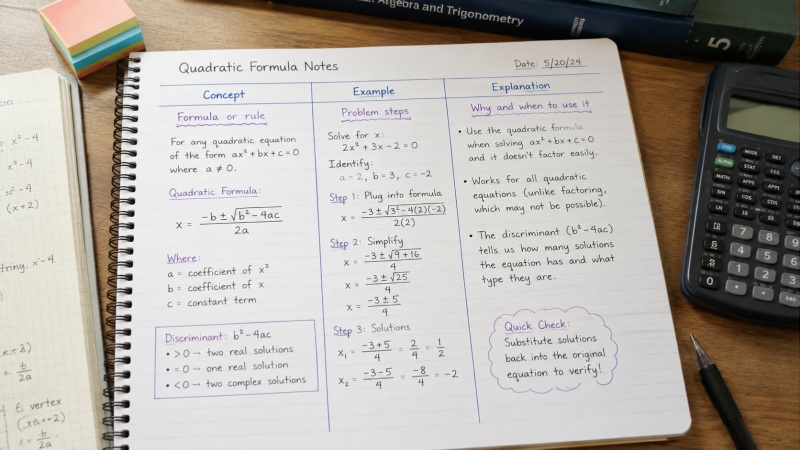 Algebra and Trigonometry
5
Quadratic Formula Notes
Date: 5/20/24
Concept
Formula or rule
For any quadratic equation
of the form ax²+bx+c=0
where a ≠ 0.
Quadratic Formula:
x = (-b ± √(b²-4ac))/2a
Where:
a = coefficient of x²
b = coefficient of x
c = constant term
Discriminant: b²-4ac
• >0 → two real solutions
• =0 → one real solution
• <0 → two complex solutions
Example
Problem steps
Solve for x:
2x²+3x-2=0
Identify:
a=2, b=3, c=-2
Step 1: Plug into formula
x = (-3 ± √(3²-4(2)(-2)))/2(2)
Step 2: Simplify
x = (-3 ± √(9+16))/4
x = (-3 ± √25)/4
x = (-3 ± 5)/4
Step 3: Solutions
x₁ = (-3+5)/4 = 2/4 = 1/2
x₂ = (-3-5)/4 = -8/4 = -2
Explanation
Why and when to use it
• Use the quadratic formula
when solving ax²+bx+c=0
and it doesn't factor easily.
• Works for all quadratic
equations (unlike factoring,
which may not be possible).
• The discriminant (b³-4ac)
tells us how many solutions
the equation has and what
type they are.
Quick Check:
Substitute solutions
back into the original
equation to verify!
x²-4
x²-4
(x+2)
b/2a
vertex
b/2a
2ND
MODE
DEL
ALPHA
MATH
APPS
SIN
7
8
9
4
5
6
1
2
3
0